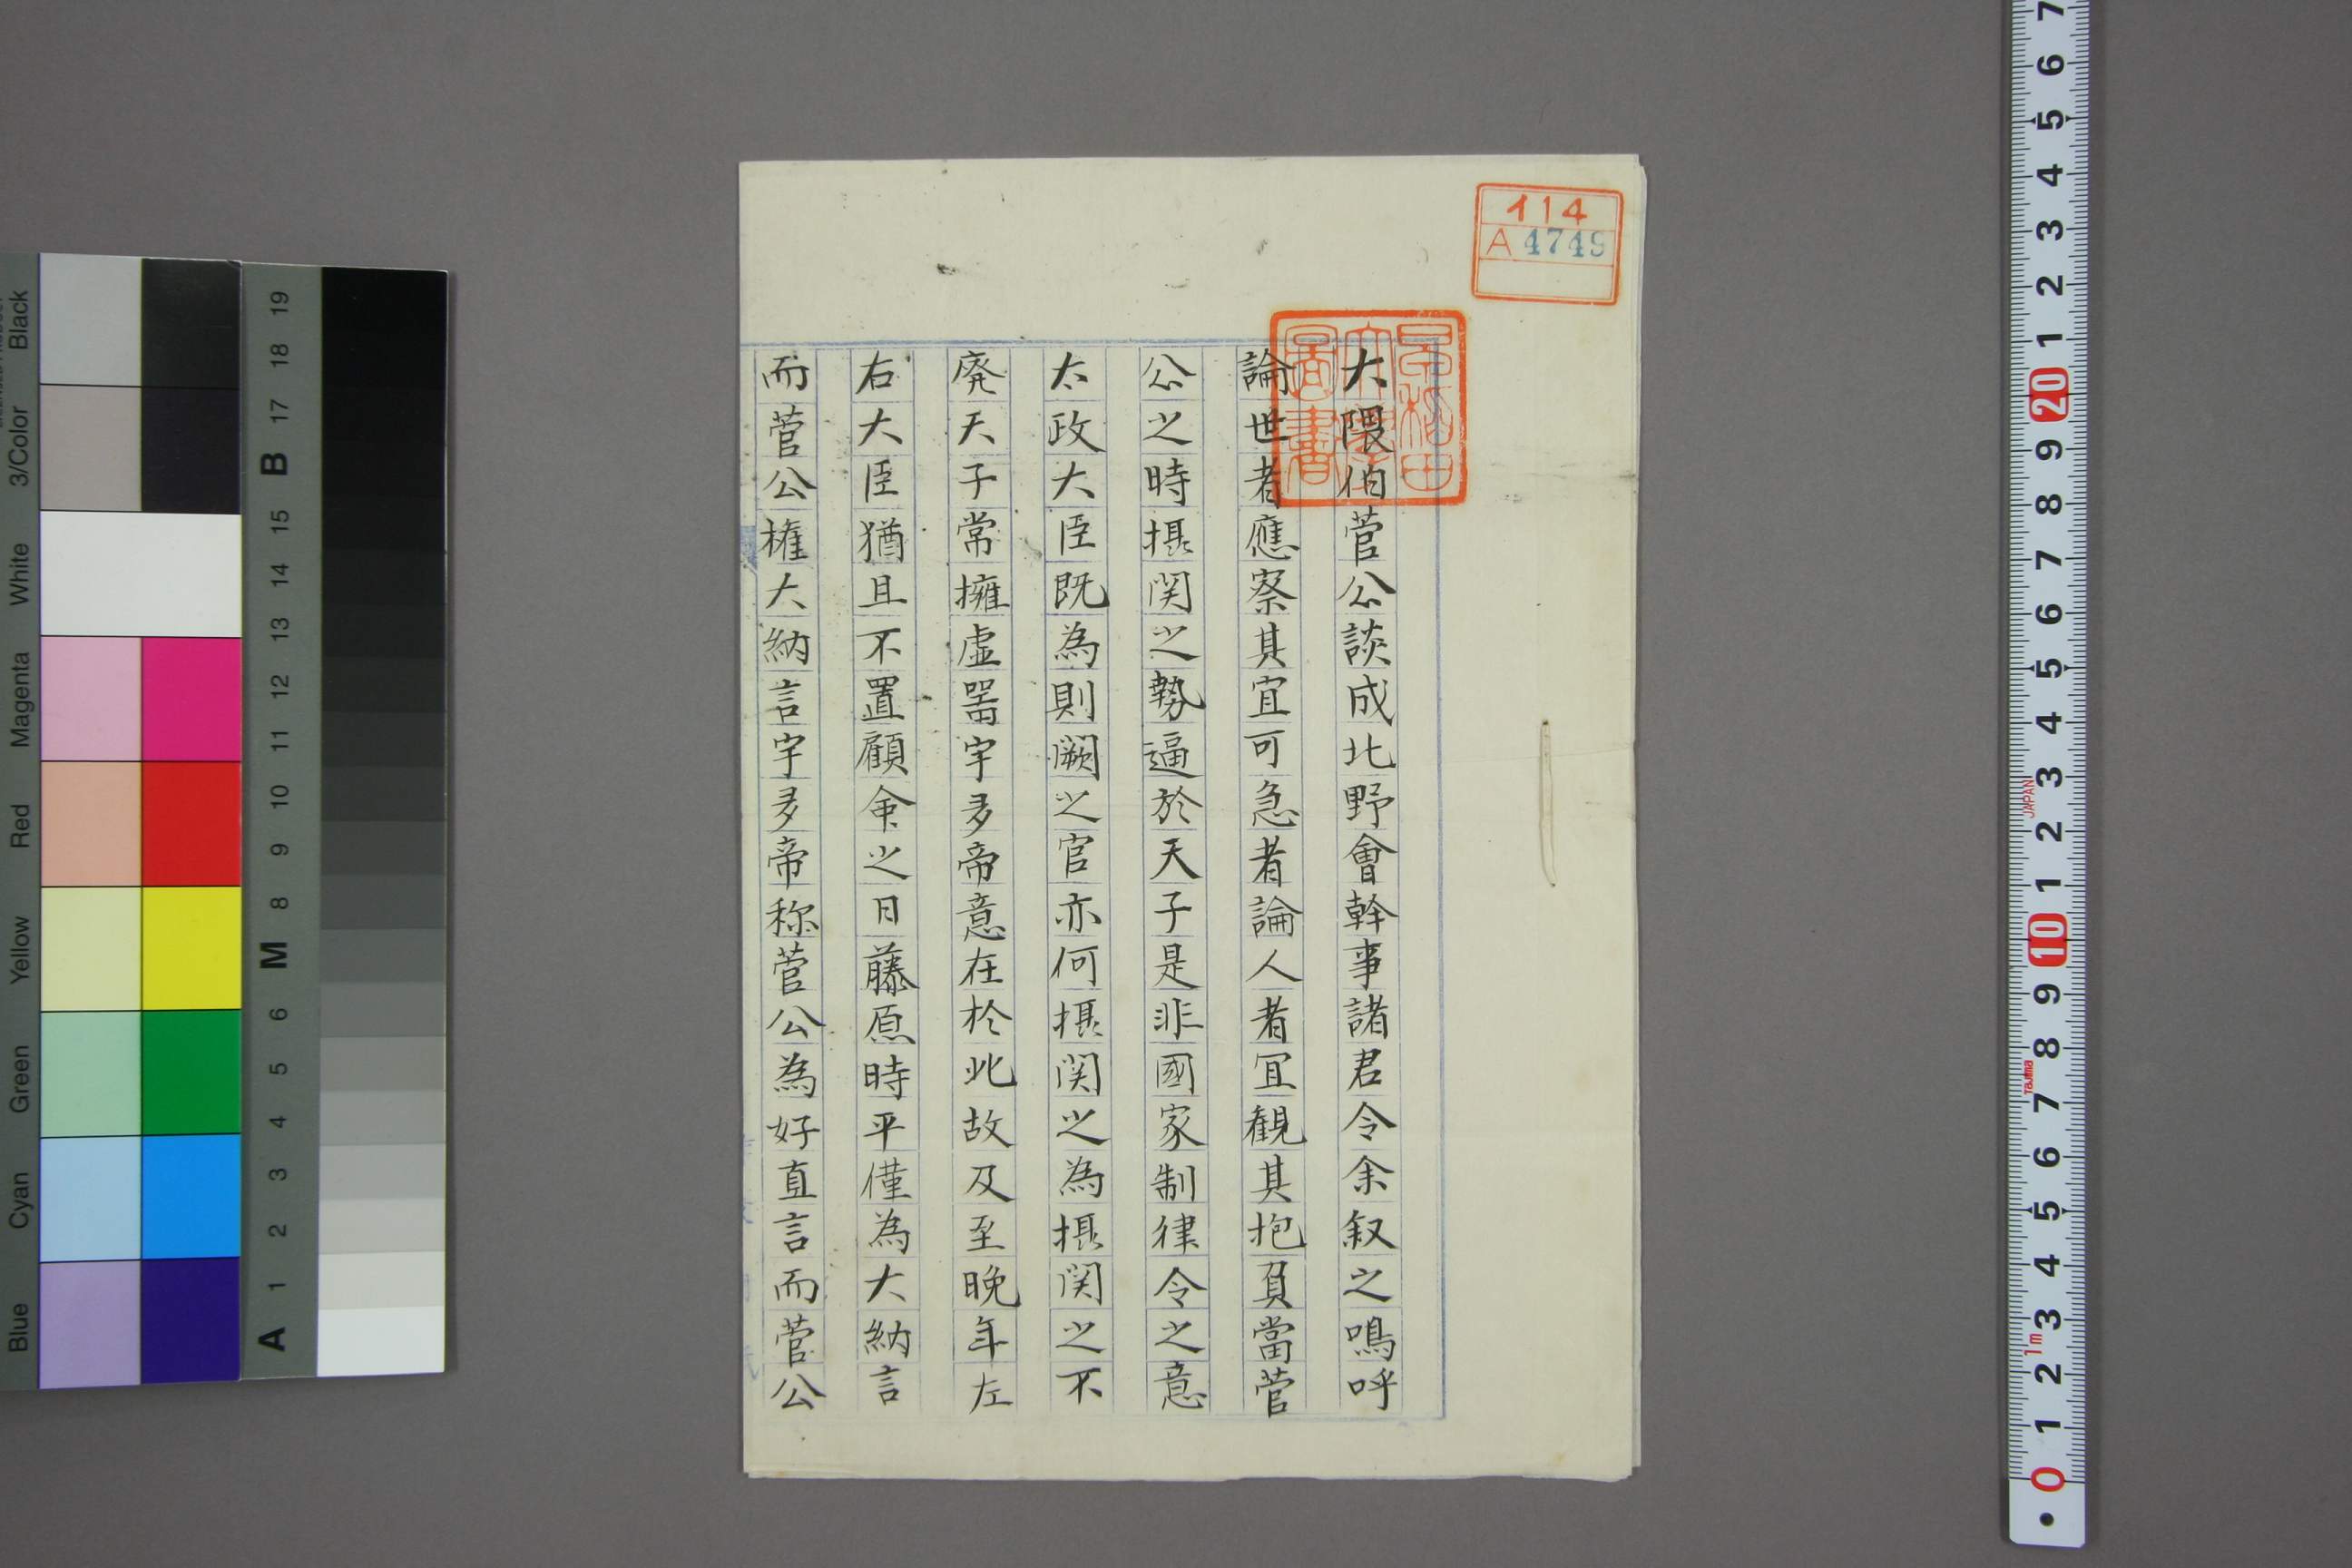 イ14
A 4749
早稲田
大學
圖書
大隈伯菅公談成北野會幹事諸君令余叙之鳴呼
論世者應察其宜可急者論人者冝観其抱負當菅
公之時摂関之勢逼於天子是非國家制律令之意
太政大臣既為則闕之官亦何摂関之為摂関之不
廃天子常擁虚器宇多帝意在於此故及至晩年左
右大臣猶且不置顧命之日藤原時平僅為大納言
而菅公権大納言宇多帝称菅公為好直言而菅公
Black
3/Color
White
Magenta
Red
Yellow
Green
Cyan
Blue
19
18
17
B
15
14
13
12
11
10
9
8
M
6
5
4
3
2
1
A
7
6
5
4
3
2
1
20
9
8
7
6
5
4
3
2
1
10
9
8
7
6
5
4
3
2
1
0
JAPAN
Tajima
1m